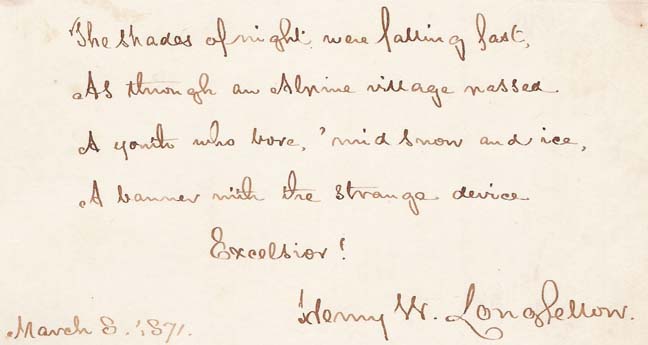 The shades of night were falling fast,
As through an Alpine village passed
A youth who bore, 'mid snow and ice,
A banner with the strange device
Excelsior!
Henry W. Longfellow.
March 8. 1871.